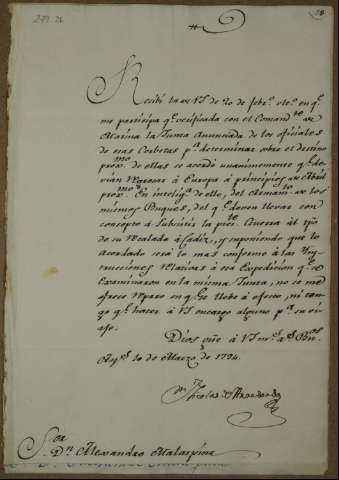 Recibí la de VS de 20 de febr.o ult.o en q.e
me participa q.e verificada con el Comand.te de
Marina la Junta Anunciada de los oficiales
de esas Corbetas p.a determinar sobre el destino
prox.mo de ellas se acordó unanimemente q.e de-
vian regresar á Europa á principios de Abril
prox.mo En intelig.a de ello, del Armam.to de los
mismos Buques, del q.e deven llevar con
concepto á Subsistir la pres.te Guerra al tpo
de su Recalada á Cadiz, y suponiendo que lo
acordado será lo mas conforme á las Yns-
trucciones relativas á esa Expedicion q.e se
examinaron en la misma Junta, no se me
ofrece reparo en q.e se lleve á efecto, ni ten-
go q.e hacer á VS encargo alguno p.a su vi-
aje.
Dios gûe á VS m.s a.s B.nos
Ay.s 10 de Marzo de 1794.
Nicolas de Arredondo
S.or
D.n Alexandro Malaspina